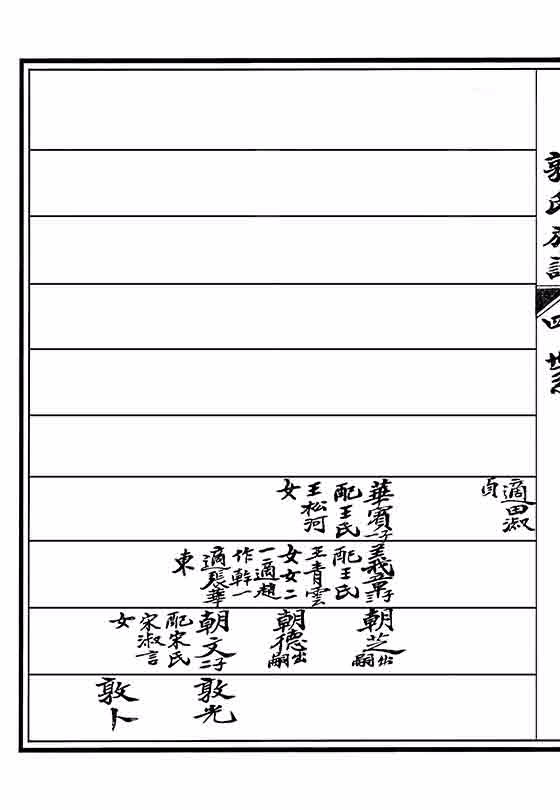 郭氏族譜
四世
適田淑
貞
華賓子
配王氏
王松河
女
義章子三
配王氏
王青雲
女女二
一適趙
作幹一
適張華
東
朝芝出嗣
朝德出嗣
朝文子二
配宋氏
宋淑言
女
敦光
敦卜